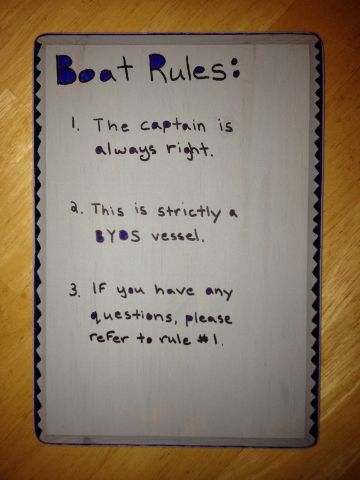 Boat Rules:
1. The captain is
always right.
2. This is strictly a
BYOS vessel.
3. If you have any
questions, please
refer to rule #1.